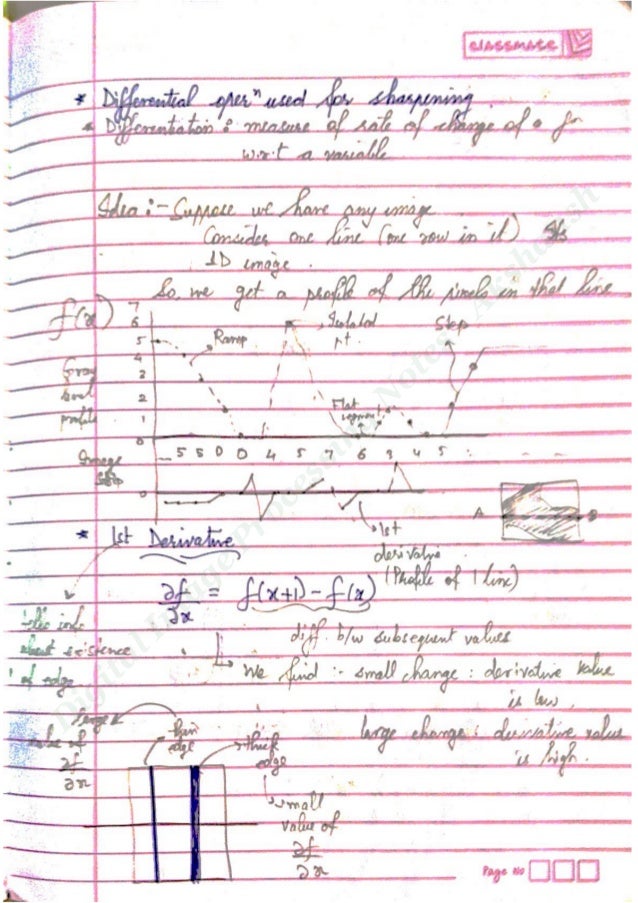 classmate
* Differential operⁿ used for sharpening
* Differentiation : measure of rate of change of a fn
w.r.t a variable
Idea :- Suppose we have any image
Consider one line (one row in it)
1D image.
So we get a profile of the pixels in that line
f(x)
7
6
5
4
3
2
1
0
Ramp
Isolated
pt.
Step
Flat
segment
Gray
level
profile
Image
5 5 0 0 4 5 7 6 3 4 5
0
A
B
1st
derivative
(Profile of 1 line)
* 1st Derivative
∂f/∂x = f(x+1) - f(x)
diff. b/w subsequent values
about existence
of edge
We find :- small change : derivative value
is low,
large change : derivative value
is high.
large
value of
∂f
∂x
thin
edge
thick
edge
small
value of
∂f
∂x
Page No
Digital Image Processing Notes - Akshansh